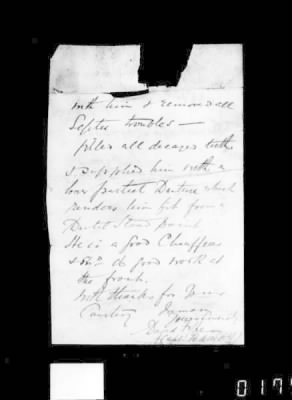 with him & removed all
Septic troubles —
filled all decayed teeth
& supplied him with a
lower partial Denture which
renders him fit from a
Dental Stand point
He is a good Chauffeur
& will do good work at
the front.
With thanks for your
Courtesy
I remain
David
017